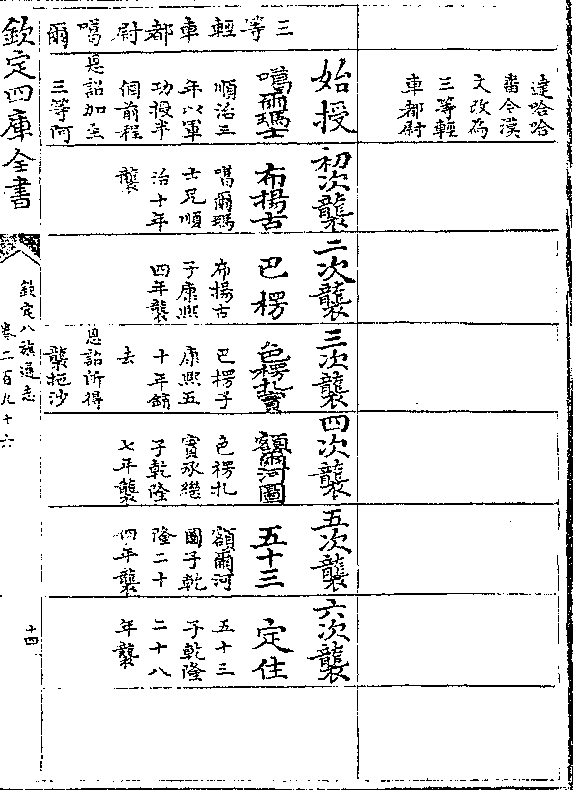 達哈哈
番今漢
文改為
三等輕
車都尉
始授
噶爾瑪士
順治三
年以軍
功授半
個前程
恩詔加至
三等阿
初次襲
布揚古
噶爾瑪
士兄順
治十年
襲
二次襲
巴楞
布揚古
子康熙
四年襲
三次襲
色楞扎實
巴楞子
康熙五
十年銷
去
恩詔所得
襲拖沙
四次襲
額爾河圖
色楞扎
實承繼
子乾隆
七年襲
五次襲
五十三
額爾河
圖子乾
隆二十
四年襲
六次襲
定住
五十三
子乾隆
二十八
年襲
三等輕車都尉噶爾
欽定四庫全書
欽定八旗通志
卷二百九十六
十四